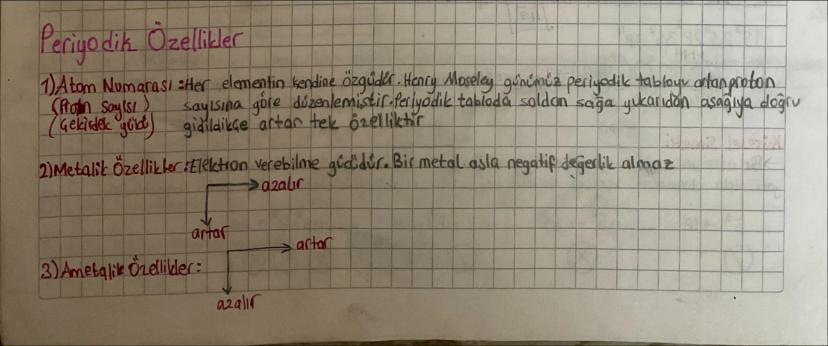 Periyodik Özellikler
1) Atom Numarası: Her elementin kendine özgüdür. Henry Moseley günümüz periyodik tabloyu artan proton
(Proton Sayısı) sayısına göre düzenlemiştir. Periyodik tabloda soldan sağa yukarıdan aşağıya doğru
(Çekirdek yükü) gidildikçe artan tek özelliktir
2) Metalik Özellikler: Elektron verebilme gücüdür. Bir metal asla negatif değerlik almaz
azalır
artar
artar
3) Ametalik Özellikler:
azalır